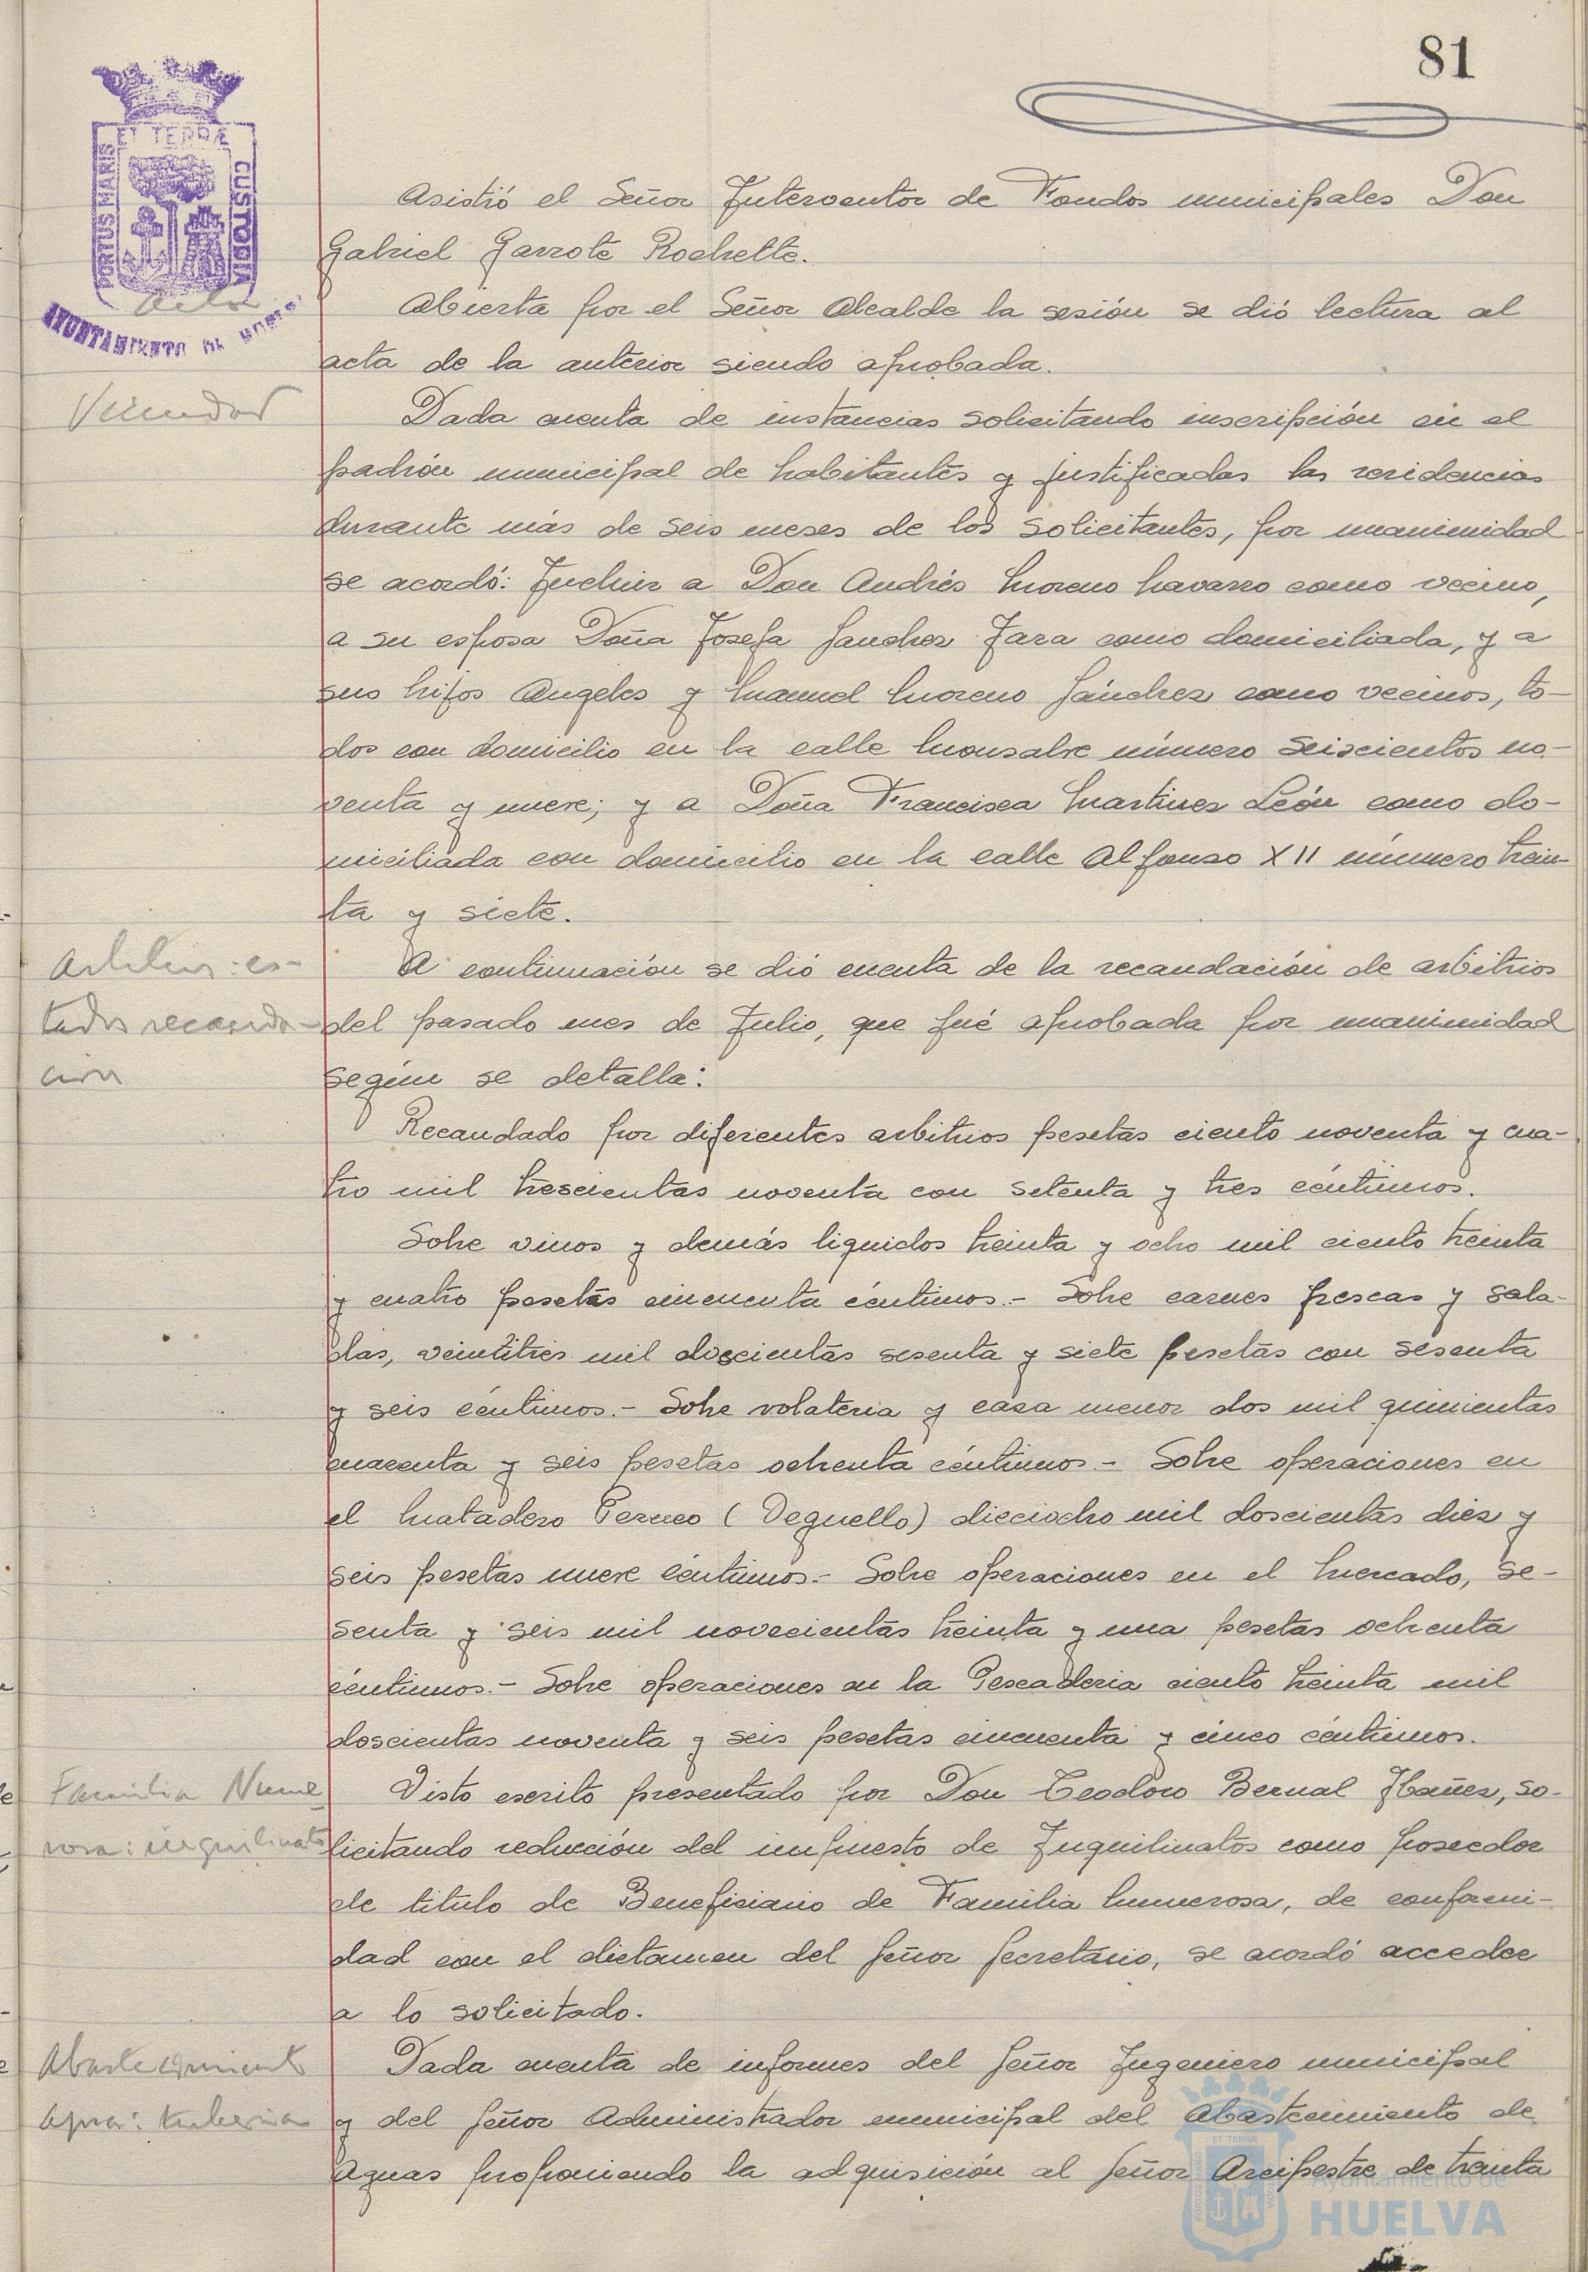 81
ET TERRÆ
PORTUS MARIS
CUSTODIA
AYUNTAMIENTO DE
Acta
Asistió el Señor Interventor de Fondos municipales Don
Gabriel Garrote Rochette.
Abierta por el Señor Alcalde la sesión se dió lectura al
acta de la anterior siendo aprobada.
Vecindad
Dada cuenta de instancias solicitando inscripción en el
padrón municipal de habitantes y justificadas las residencias
durante más de seis meses de los solicitantes, por unanimidad
se acordó: Incluir a Don Andrés Moreno Navarro como vecino,
a su esposa Doña Josefa Sanchez Jara como domiciliada, y a
sus hijos Angeles y Manuel Moreno Sánchez como vecinos, to-
dos con domicilio en la calle Monsalve número seiscientos no-
venta y nueve; y a Doña Francisca Martinez León como do-
miciliada con domicilio en la calle Alfonso XII número trein-
ta y siete.
Arbitrios: es-
tados recauda-
ción
A continuación se dió cuenta de la recaudación de arbitrios
del pasado mes de Julio, que fué aprobada por unanimidad
según se detalla:
Recaudado por diferentes arbitrios pesetas ciento noventa y cua-
tro mil trescientas noventa con setenta y tres céntimos.
Sobre vinos y demás liquidos treinta y ocho mil ciento treinta
y cuatro pesetas cincuenta céntimos.- Sobre carnes frescas y sala-
das, veintitres mil doscientas sesenta y siete pesetas con sesenta
y seis céntimos.- Sobre volateria y casa menor dos mil quinientas
cuarenta y seis pesetas ochenta céntimos.- Sobre operaciones en
el Matadero Perneo (Deguello) dieciocho mil doscientas diez y
seis pesetas nueve céntimos.- Sobre operaciones en el Mercado, se-
senta y seis mil novecientas treinta y una pesetas ochenta
céntimos.- Sobre operaciones en la Pescaderia ciento treinta mil
doscientas noventa y seis pesetas cincuenta y cinco céntimos.
Familia Nume
rosa: inquilinato
Visto escrito presentado por Don Teodoro Bernal Ibañez, so-
licitando reducción del impuesto de Inquilinatos como poseedor
de titulo de Beneficiario de Familia Numerosa, de conformi-
dad con el dictamen del Señor Secretario, se acordó acceder
a lo solicitado.
Abastecimiento
Agua: tuberias
Dada cuenta de informes del Señor Ingeniero municipal
y del Señor Administrador municipal del Abastecimiento de
Aguas proponiendo la adquisición al Señor Arcipestre de treinta
Ayuntamiento de
HUELVA